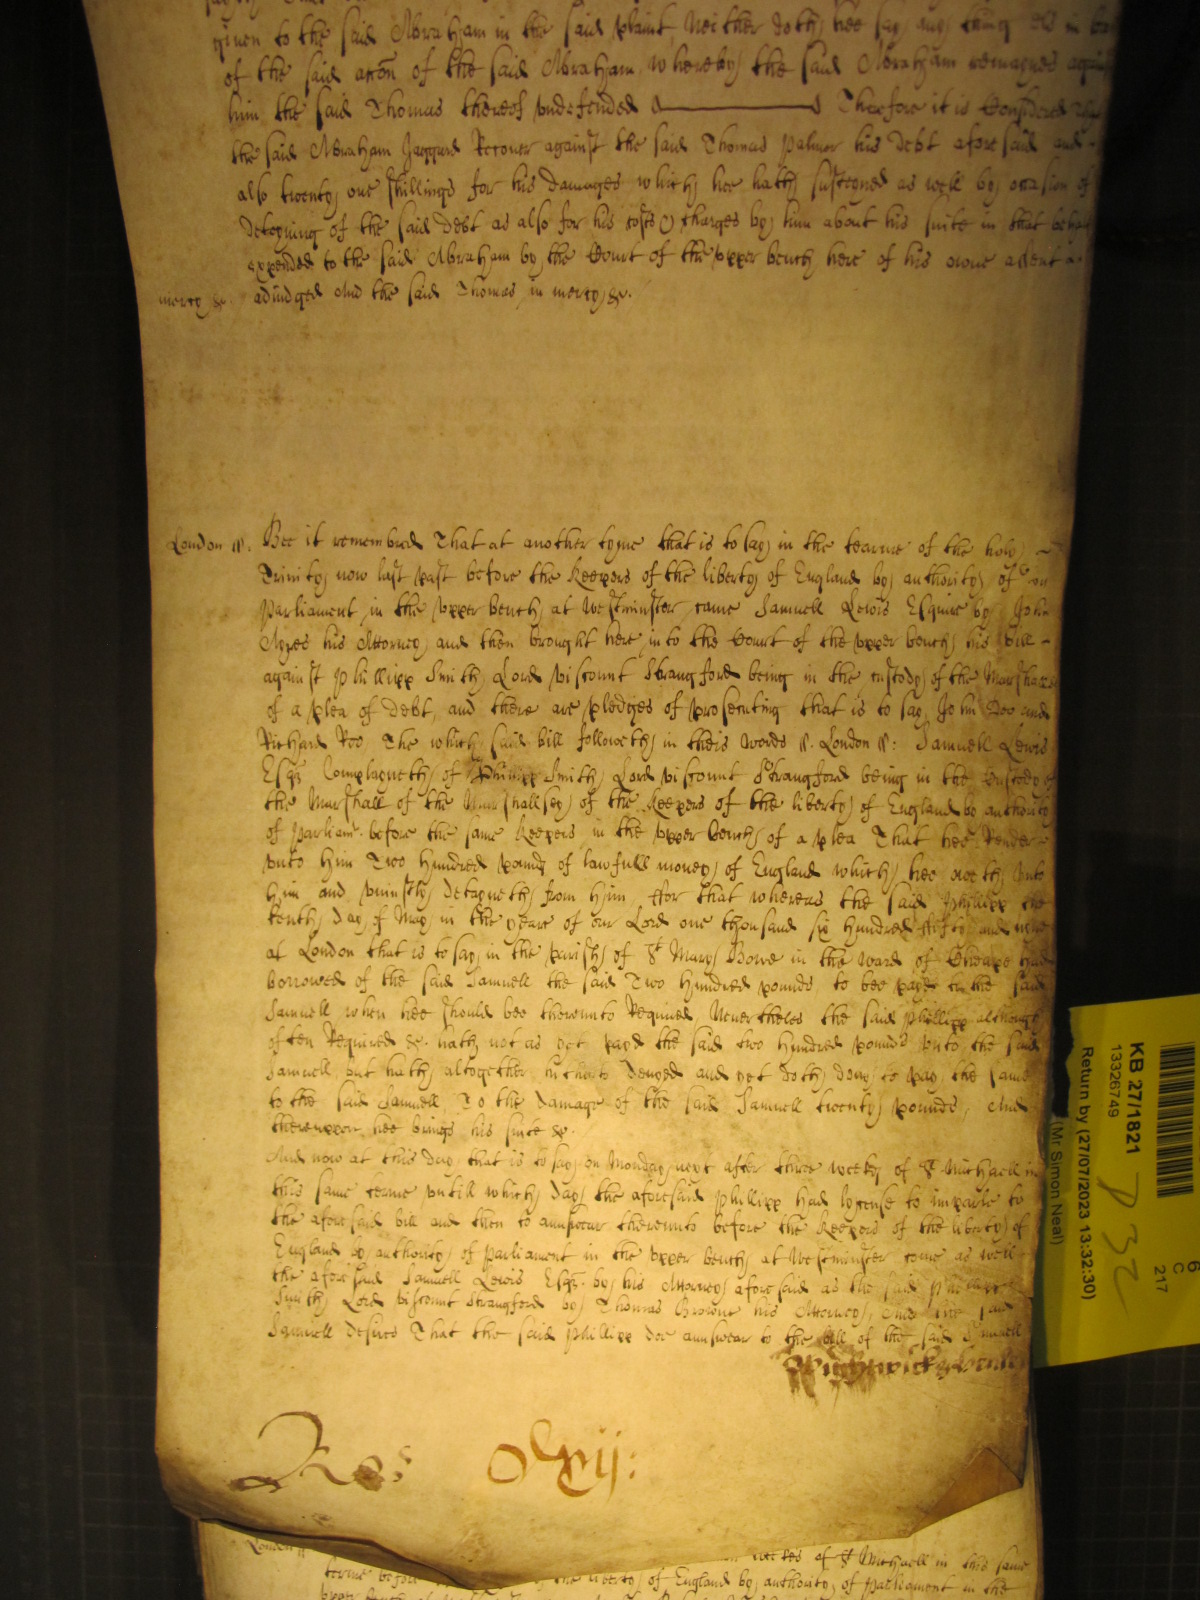 given to the said Abraham in the said plaint Neither doth hee say any thing els in
of the said accon of the said Abraham, whereby the said Abraham remaynes
him the said Thomas thereof vndefended Therefore it is Considered That
the said Abraham Jaggard Recouer against the said Thomas Palmer his Debt aforesaid and
also twenty one shillings for his Damages which hee hath susteyned as well by occasion of
Detayning of the said Debt as also for his costs & charges by him about his suite in that behalf
expended to the said Abraham by the Court of the vpper bench here of his owne assent
mercy &c. adiudged And the said Thomas in mercy &c.
London ss. Bee it remembred That at another tyme that is to say in the tearme of the holy
Trinity now last past before the Keepers of the liberty of England by authority of
Parliament in the vpper bench at Westminster came Samuell Lewis Esquire by John
Ayres his Attorney and then brought here into the Court of the vpper bench his bill
against Phillipp Smith Lord viscount Strangford being in the custody of the Marshall
of a plea of Debt, and there are pledges of prosecuting that is to say John Doo and
Richard Roo, The which said bill followeth in theis words ss. London ss: Samuell Lewis
Esqr Complayneth of Phillipp Smith Lord viscount Strangford being in the Custody of
the Marshall of the Marshallsey of the Keepers of the liberty of England by authority
of Parliamt. before the same Keepers in the vpper bench of a plea That hee Render
vnto him Two Hundred pounds of lawfull money of England which hee oweth vnto
him and vniustly Detayneth from him ffor that whereas the said Phillipp the
tenth day of May in the yeare of our Lord one thousand six hundred ffifty and nine
at London that is to say in the parish of St Mary Bowe in the ward of Cheape had
borrowed of the said Samuell the said Two Hundred pounds, to bee payd to the said
Samuell when hee should bee therevnto Required Neuertheles the said Phillipp although
often Required &c. hath not as yet payd the said two hundred pounds vnto the said
Samuell but hath altogether hitherto Denyed and yet doth deny to pay the same
to the said Samuell, To the damage of the said Samuell twenty pounds, And
therevppon hee brings his suite &c.
And now at this day that is to say on Monday next after three weeks of St Michaell in
this same terme vntill which day the aforesaid Phillipp had lycense to imparle to
the aforesaid bill and then to aunswear therevnto before the Keepers of the liberty of
England by authority of Parliament in the vpper bench at Westminster come as well
the aforesaid Samuell Lewis Esqr. by his Attorney aforesaid as the said Phillipp
Smith Lord viscount Strangford by Thomas Browne his Attorney, And the said
Samuell desires That the said Phillipp doe aunswear to the bill of the said Samuell
Ros Clxij:
London ss
weekes of St Michaell in this same
terme before the liberty of England by authority of Parliament in the
KB 27/1821
13326749
Return by (27/07/2023 13:32:30)
(Mr Simon Neal)
6
C
217